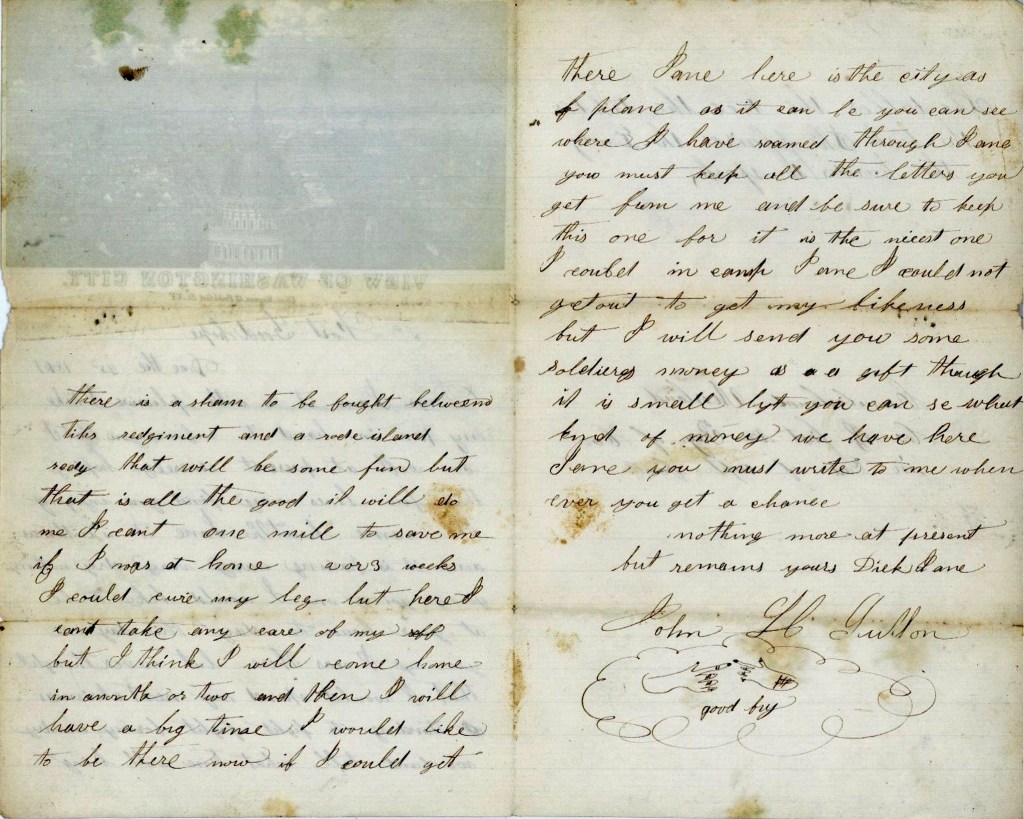 VIEW OF WASHINGTON CITY.
there is a sham to be fought betweend
tihs redgiment and a rode island
redg that will be some fun but
that is all the good it will do
me I cant one mill to save me
if I was at home 2 or 3 weeks
I could cure my leg but here I
cant take any care of my
but I think I will come home
in a month or two and then I will
have a big time I would like
to be there now if I could get
there Jane here is the city as
plane as it can be you can see
where I have roamed through Jane
you must keep all the letters you
get frum me and be sure to keep
this one for it is the nicest one
I could in camp Jane I could not
get out to get my likeness
but I will send you some
soldiers money as a gift though
it is small but you can se what
kynd of money we have here
Jane you must write to me when
ever you get a chance
nothing more at present
but remains yours Dick Jane
John H
good by